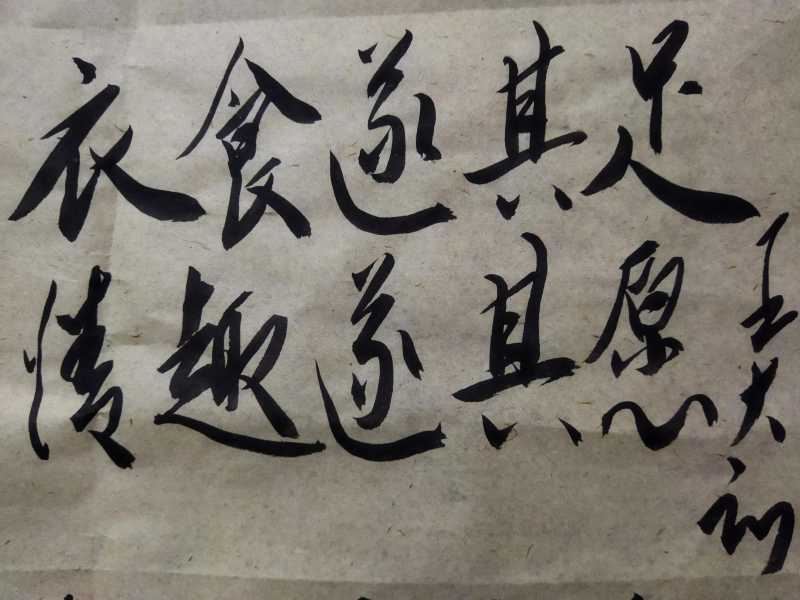 衣食遂其足
情趣遂其愿
王大初